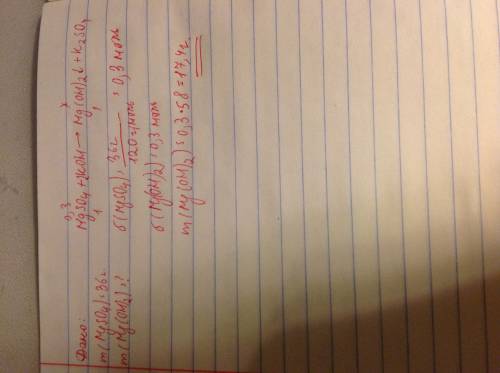 Дано:
m(MgSO₄)=36г
m(Mg(OH)₂)=?
0,3 x
MgSO₄+2KOH→Mg(OH)₂↓+K₂SO₄
1 1
σ(MgSO₄)=36г/120г/моль=0,3 моль
σ(Mg(OH)₂)=0,3 моль
m(Mg(OH)₂)=0,3·58=17,4г.